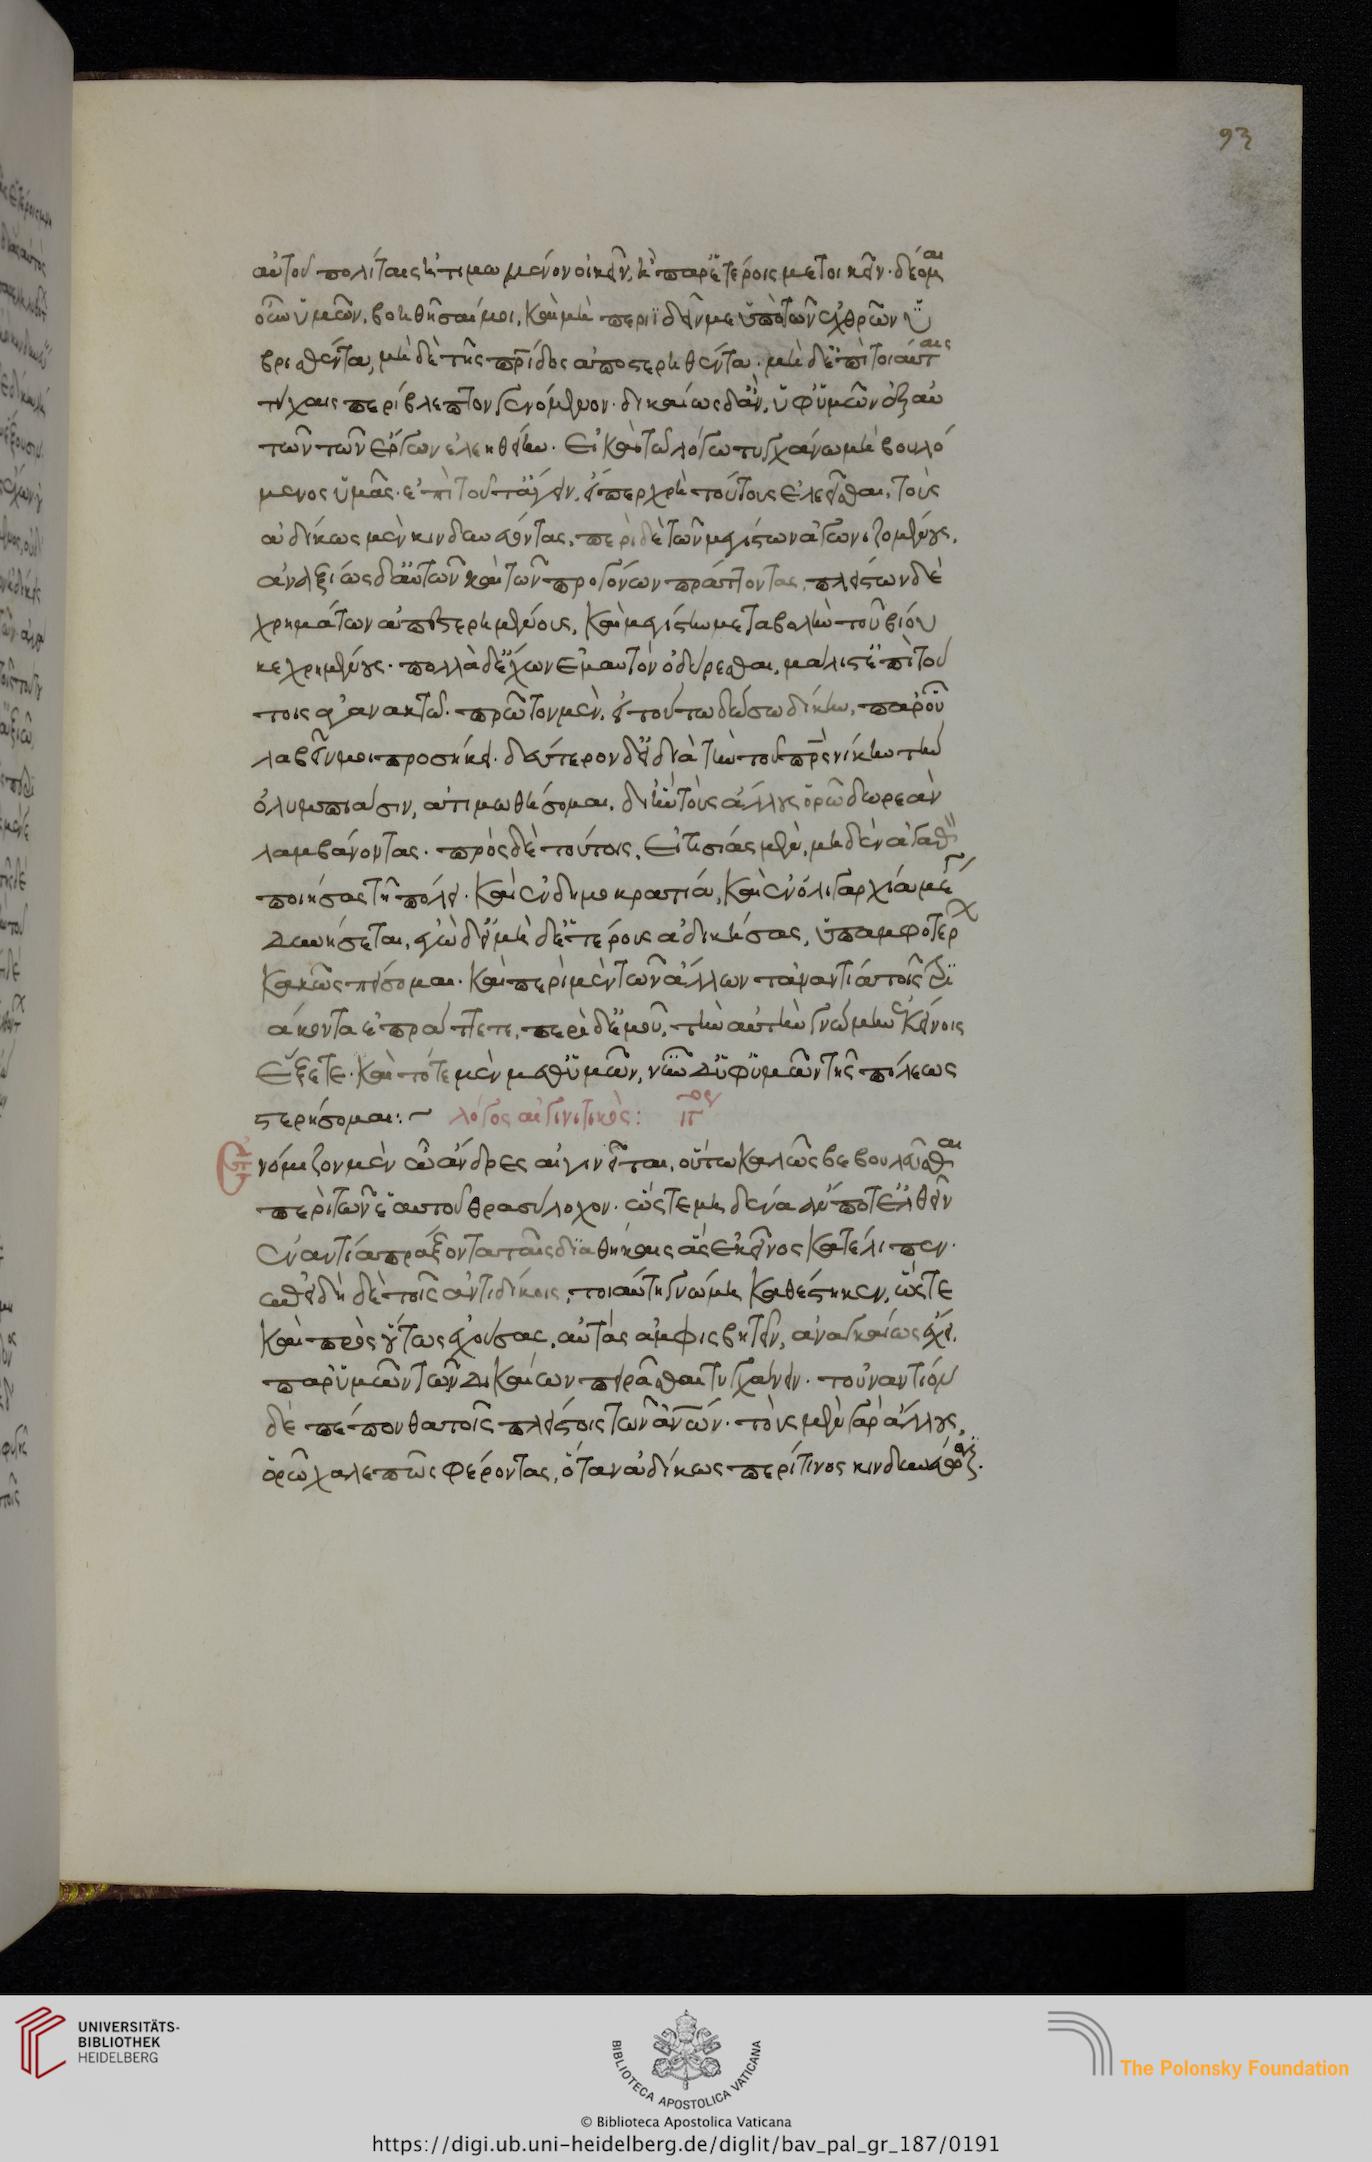 αὐτοῦ πολίταις ἢ τιμωμένον οἰκεῖν, ἢ παρ' ἑτέροις μετοικεῖν· δέομαι
οὖν ὑμῶν, βοηθῆσαί μοι, καὶ μὴ περιϊδεῖν με ὑπὸ τῶν ἐχθρῶν ὑ
βρισθέντα, μηδὲ τῆς πρίδος ἀποστερηθέντα· μηδ' ἐπὶ τοιαύταις
τύχαις περίβλεπτον γενόμενον· δικαίως δ' ἂν, ὑφ' ὑμῶν ἐξ αὐ
τῶν τῶν ἔργων ἐλεηθείην· εἰ καὶ τῷ λόγῳ τυγχάνω μὴ βουλό
μενος ὑμᾶς· ἐπὶ τοῦτ' ἄγειν, εἴπερ χρὴ τούτους ἐλεεῖσθαι, τοὺς
ἀδίκως μὲν κινδυνεύοντας, περὶ δὲ τῶν μεγίστων ἀγωνιζομένους,
ἀναξίως δ' αὑτῶν καὶ τῶν προγόνων πράττοντας, πλείστων δὲ
χρημάτων ἀπεστερημένους, καὶ μεγίστην μεταβολὴν τοῦ βίου
κεχρημένους· πολλὰ δ' ἔχων ἐμαυτὸν ὀδύρεσθαι, μάλιστ' ἐπὶ τού
τοις ἀγανακτῶ· πρῶτον μὲν, εἰ τούτω δώσω δίκην, παρ' οὗ
λαβεῖν μοι προσήκει· δεύτερον δ' εἰ διὰ τὴν τοῦ πρς νίκην τὴν
ὀλυμπιάσιν, ἀτιμωθήσομαι, δι' ἣν τοὺς ἄλλους ὁρῶ δωρεὰν
λαμβάνοντας· πρὸς δὲ τούτοις, εἰ τισίας μὲν, μηδὲν ἀγαθὸν
ποιήσας τῇ πόλει· καὶ ἐν δημοκρατία, καὶ ἐν ὀλιγαρχία μέγα
δυνήσεται, ἐγὼ δ' εἰ μηδετέρους ἀδικήσας, ὑπ' ἀμφοτέρων
κακῶς πείσομαι· καὶ περὶ μὲν τῶν ἄλλων τἀναντία τοῖς τρι
άκοντα ἐπράττετε, περὶ δ' ἐμοῦ, τὴν αὐτὴν γνώμην ἐκείνοις
ἕξετε· καὶ τότε μὲν μεθ' ὑμῶν, νῦν δ' ὑφ' ὑμῶν τῆς πόλεως
στερήσομαι:~ λόγος αἰγινιτικὸς:
Ἐνόμιζον μὲν ὦ ἄνδρες αἰγινῆται, οὕτω καλῶς βεβουλεῦσθαι
περὶ τῶν ἑαυτοῦ θρασύλοχον· ὥστε μηδένα ἄν ποτ' ἐλθεῖν
ἐναντία πράξοντα ταῖς διαθήκαις ἃς ἐκεῖνος κατέλιπεν·
ἐπειδὴ δὲ τοῖς ἀντιδίκοις, τοιαύτη γνώμη καθέστηκεν, ὥστε
καὶ πρὸς οὕτως ἐχούσας, αὐτὰς ἀμφισβητεῖν, ἀναγκαίως ἔχει,
παρ' ὑμῶν τῶν δικαίων πειρᾶσθαι τυγχάνειν· τοὐναντίον
δὲ πέπονθα τοῖς πλείστοις τῶν ἀνων· τοὺς μὲν γὰρ ἄλλους,
ὁρῶ χαλεπῶς φέροντας, ὅταν ἀδίκως περί τινος κινδυνεύωσιν.
93
UNIVERSITÄTS-
BIBLIOTHEK
HEIDELBERG
BIBLIOTECA APOSTOLICA VATICANA
© Biblioteca Apostolica Vaticana
The Polonsky Foundation
https://digi.ub.uni-heidelberg.de/diglit/bav_pal_gr_187/0191